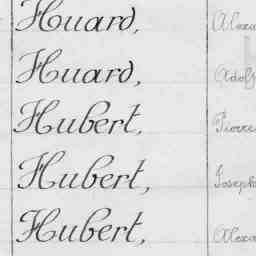 Huard, Alexa
Huard, Adolp
Hubert, Pierre
Hubert, Joseph
Hubert, Alexa